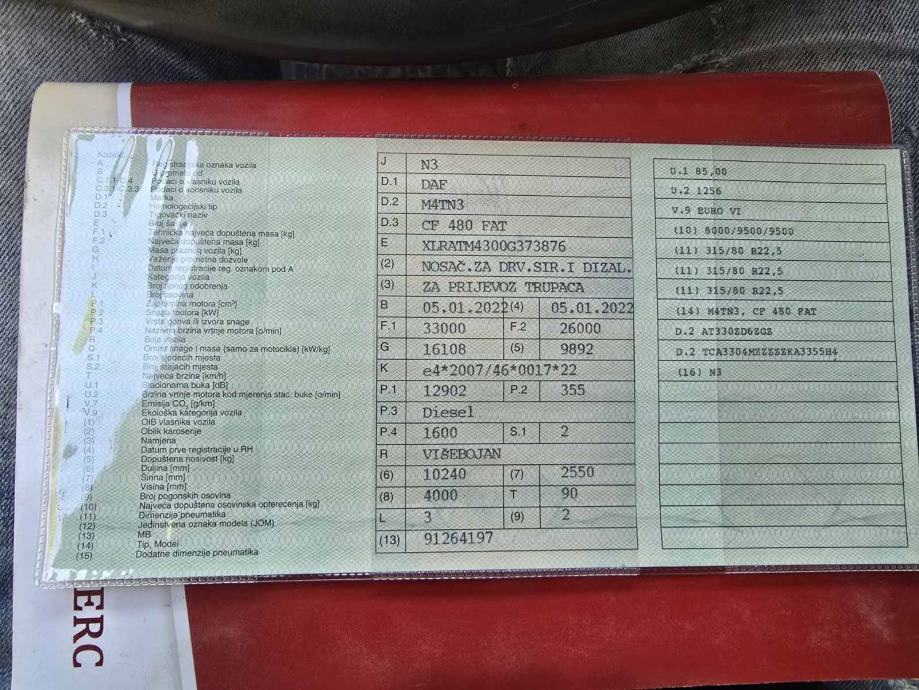 A Registracijska oznaka vozila
B U prometu od
C.1.1-C.4 Podaci o vlasniku vozila
C.3.1-C.3.3 Podaci o korisniku vozila
D.1 Marka
D.2 Homologacijski tip
D.3 Trgovački naziv
E Broj šasije
F.1 Tehnička najveća dopuštena masa [kg]
F.2 Najveća dopuštena masa [kg]
G Masa praznog vozila [kg]
H Važenje prometne dozvole
I Datum registracije reg. oznakom pod A
J Kategorija vozila
K Broj tipnog odobrenja
L Broj osovina
P.1 Zapremina motora [cm³]
P.2 Snaga motora [kW]
P.3 Vrsta goriva ili izvora snage
P.4 Nazivna brzina vrtnje motora [o/min]
R Boja vozila
Q Omjer snage i mase (samo za motocikle) [kW/kg]
S.1 Broj sjedećih mjesta
S.2 Broj stajaćih mjesta
T Najveća brzina [km/h]
U.1 Stacionarna buka [dB]
U.2 Brzina vrtnje motora kod mjerenja stac. buke [o/min]
V.7 Emisija CO₂ [g/km]
V.9 Ekološka kategorija vozila
(1) OIB vlasnika vozila
(2) Oblik karoserije
(3) Namjena
(4) Datum prve registracije u RH
(5) Dopuštena nosivost [kg]
(6) Duljina [mm]
(7) Širina [mm]
(8) Visina [mm]
(9) Broj pogonskih osovina
(10) Najveća dopuštena osovinska opterećenja [kg]
(11) Dimenzije pneumatika
(12) Jedinstvena oznaka modela (JOM)
(13) MB
(14) Tip, Model
(15) Dodatne dimenzije pneumatika
J N3
D.1 DAF
D.2 M4TN3
D.3 CF 480 FAT
E XLRATM4300G373876
(2) NOSAČ.ZA DRV.SIR.I DIZAL.
(3) ZA PRIJEVOZ TRUPACA
B 05.01.2022 (4) 05.01.2022
F.1 33000 F.2 26000
G 16108 (5) 9892
K e4*2007/46*0017*22
P.1 12902 P.2 355
P.3 Diesel
P.4 1600 S.1 2
R VIŠEBOJAN
(6) 10240 (7) 2550
(8) 4000 T 90
L 3 (9) 2
(13) 91264197
U.1 85,00
U.2 1256
V.9 EURO VI
(10) 8000/9500/9500
(11) 315/80 R22,5
(11) 315/80 R22,5
(11) 315/80 R22,5
(14) M4TN3, CF 480 FAT
D.2 AT330ZD6ZGZ
D.2 TCA3304MZZZZZKA3355H4
(16) N3
ERC